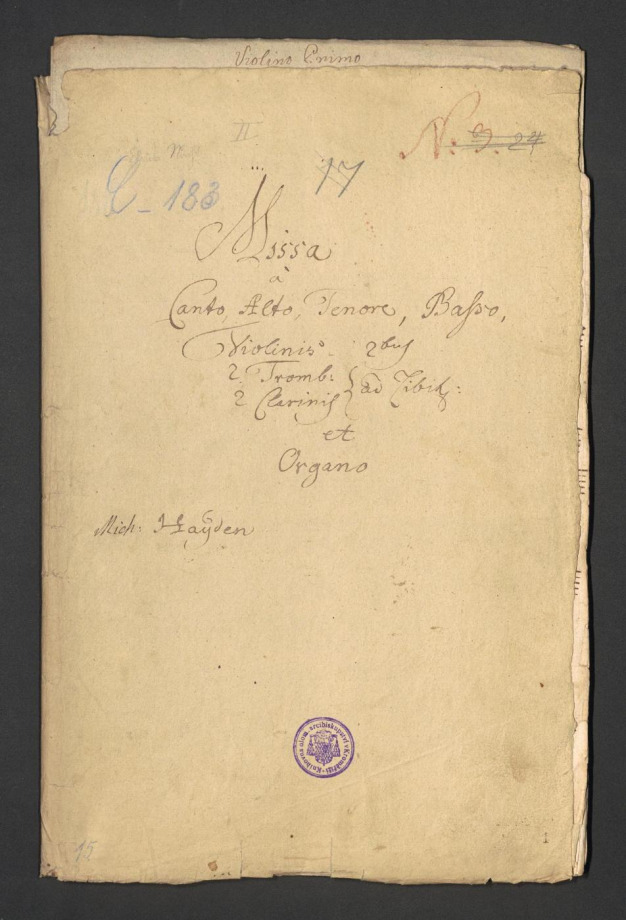 Violino Primo
II
N. 9. 24
17
C - 183
Missa
à
Canto, Alto, Tenore, Basso,
Violinis 2bus
2 Tromb:
2 Clarinis
ad Libit:
et
Organo
Mich: Haÿden
Knihovna olom. arcibiskupství v Kroměříži
15
1